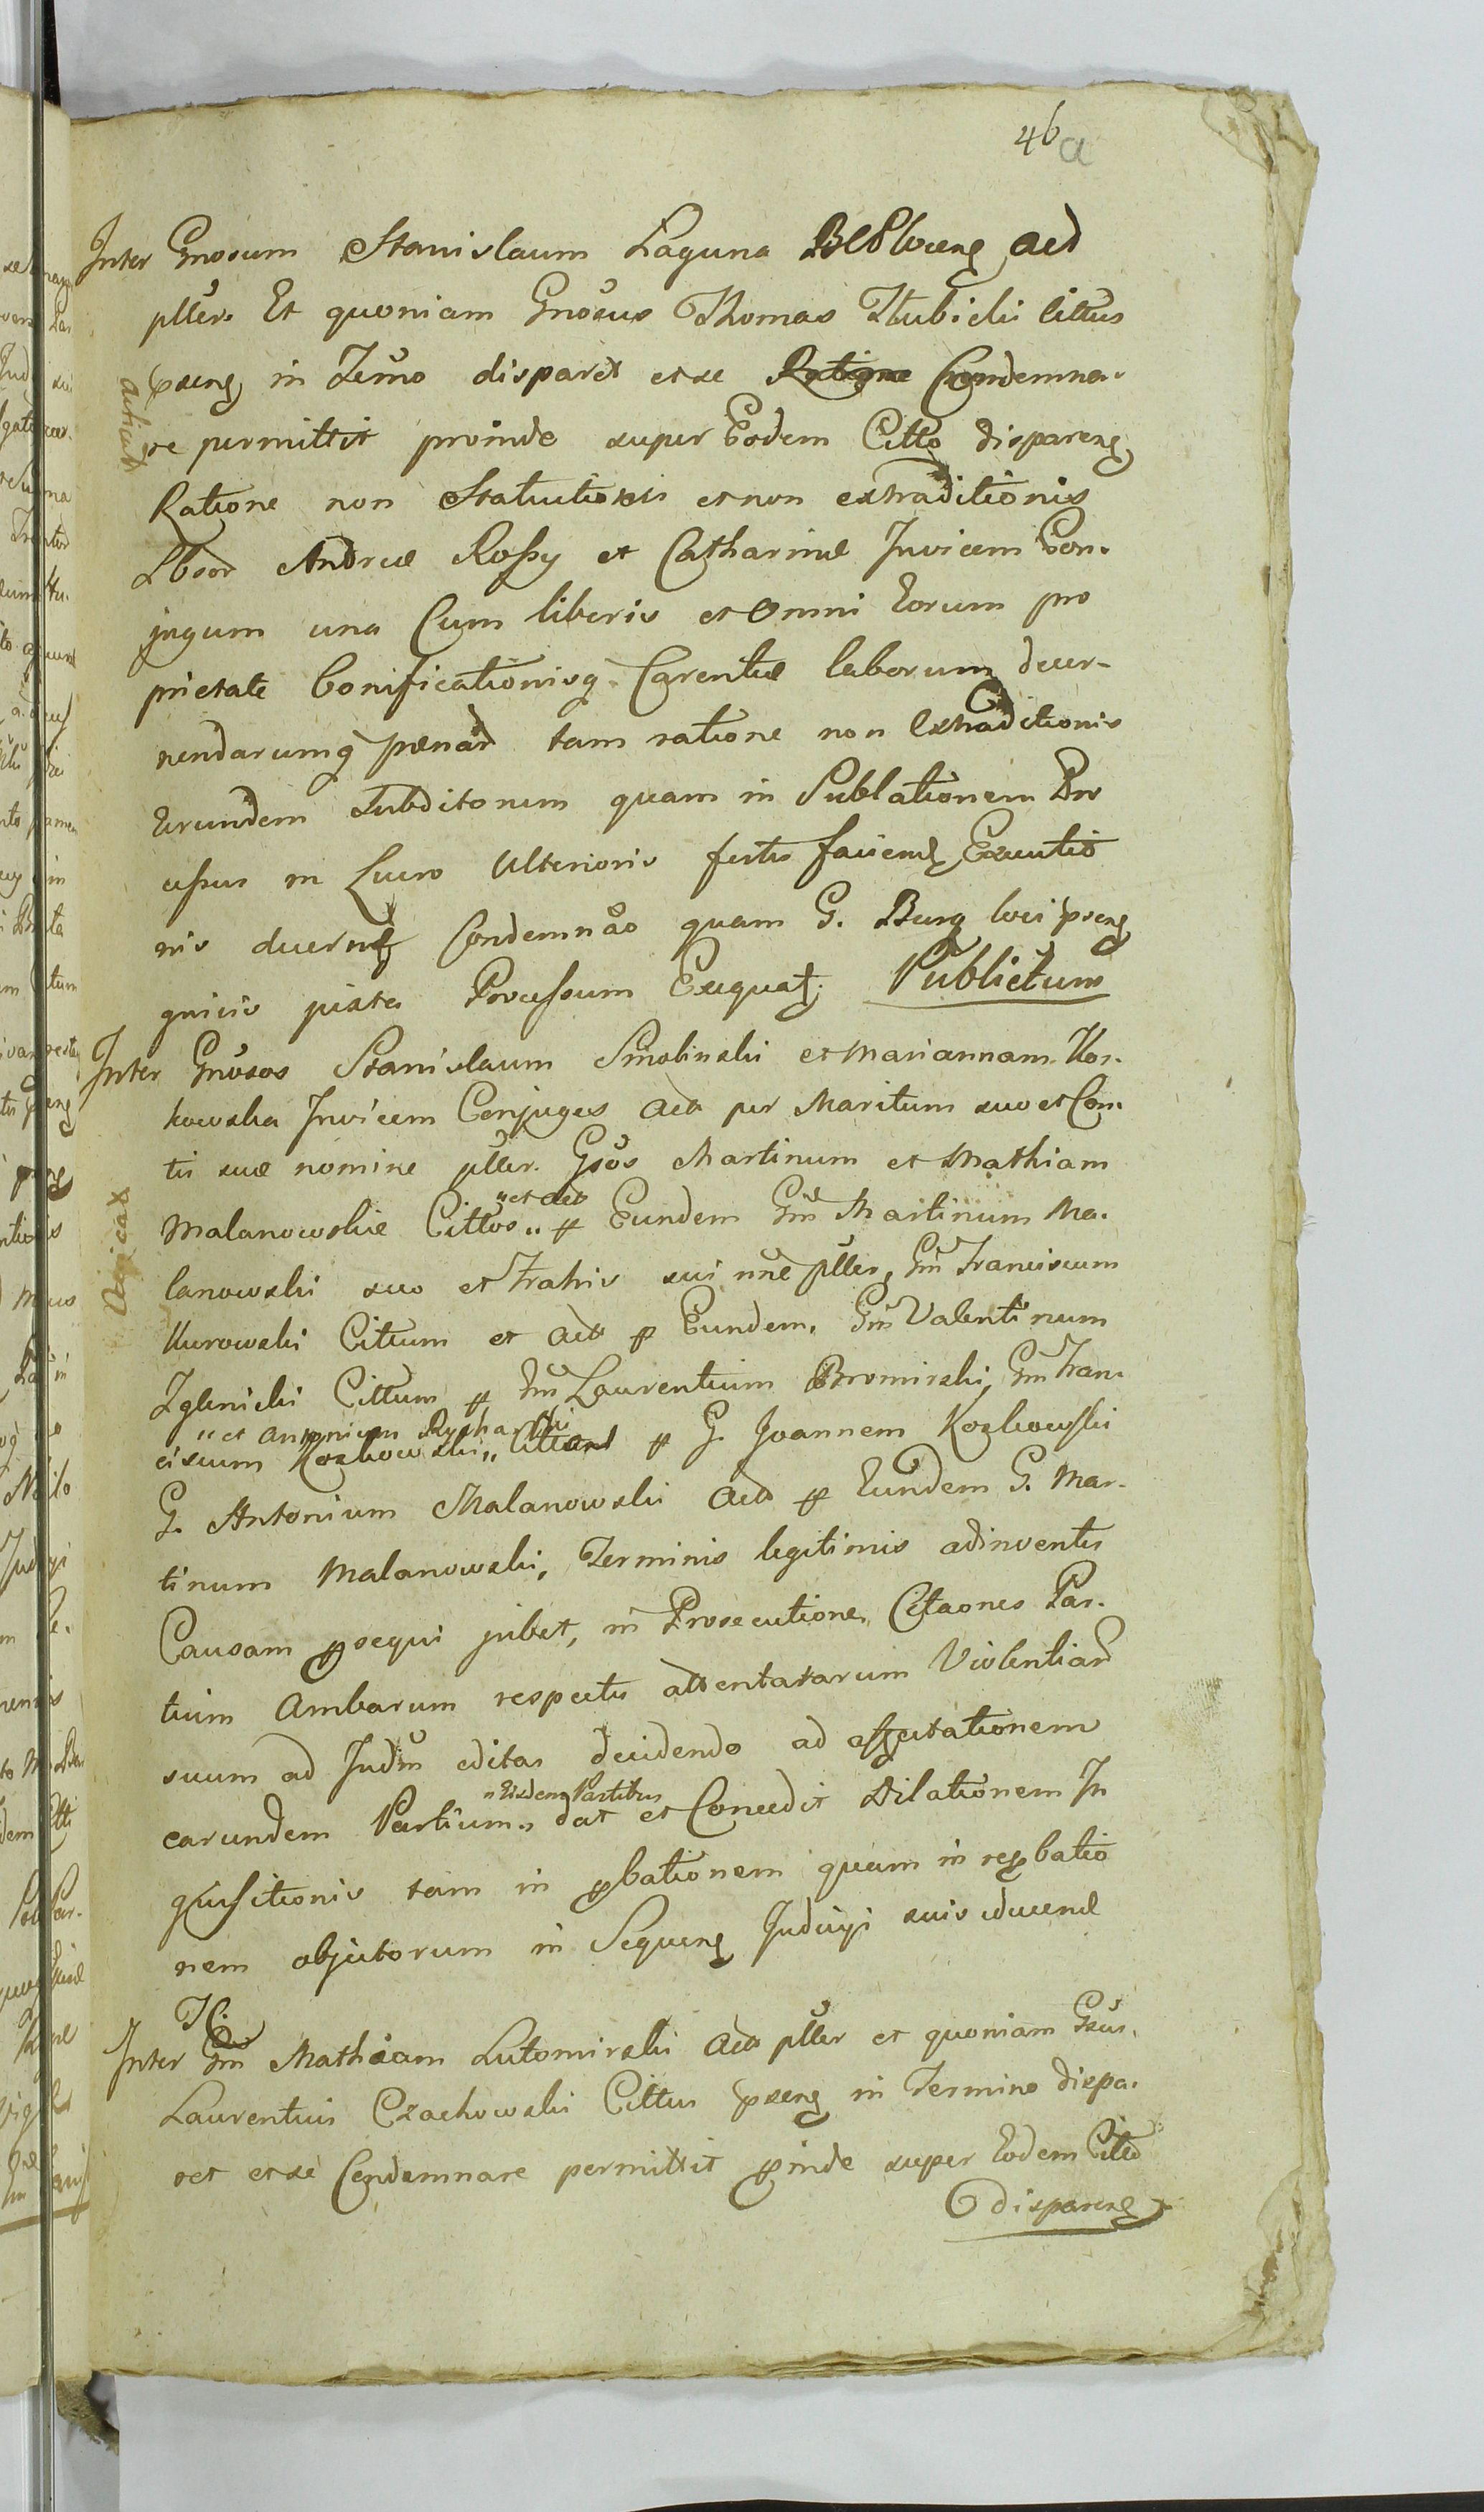 46 a
Inter Gnosum Stanislaum Laguna Act
pller. Et quoniam Gnosus Thomas Hubicki Cittus
psens in Termo disparet et se Ratione Condemna-
re permittit proinde super Eodem Citto disparens
Ratione non Statutionis et non extraditionis
Lbsor Andreæ Rossy et Catharinæ Invicem Con-
jugum una Cum liberis et Omni Eorum pro
prietate bonificationisq Carentiæ laborum decer-
nendarumq pænar tam ratione non Extraditionis
Eorundem Subditorum quam in Sublationem Pro
cessus in Lucro Ulterioris juris faciend Executio
nis decernit Condemnao quam G. Burg loci psens
juxta Processum Exequat. Publicatum
acticat
Inter Gnosos Stanislaum Smolinski et Mariannam Kos-
kowska Invicem Conjuges Act per Maritum suo et Con-
tis suæ nomine pller. Gsos Martinum et Mathiam
Malanowskie Cittos „ et act p Eundem Gm Martinum Ma-
lanowski suo et Fratris sui nne pller, Gm Franciscum
Kurowski Cittum et act p Eundem. Gm Valentinum
Iglinicki Cittum p Gm Laurentium Bromirski, Gm Fran-
„ et Antonium
ciscum Kozkowski „ Cittand p G. Joannem Kozkowski
G. Antonium Malanowski act p Eundem G. Mar-
tinum Malanowski, Terminis legitimis adinventis
Causam psequi jubet, in Prosecutione, Citaones Par-
tium Ambarum respectu attentatarum Violentiar
suum ad Judm editas decidendo ad affectationem
„ Eisdem Partibus
earundem Partium „ dat et Concedit Dilationem In
quisitionis tam in pbationem quam in repbatio
nem objectorum in Sequens Judicyi suis educend
Inter Gm Mathiam Lutomirski Act pller et quoniam Gsus.
Laurentius Czachowski Cittus psens in Termino dispa-
ret et se Condemnare permittit pinde super Eodem Citto
disparens